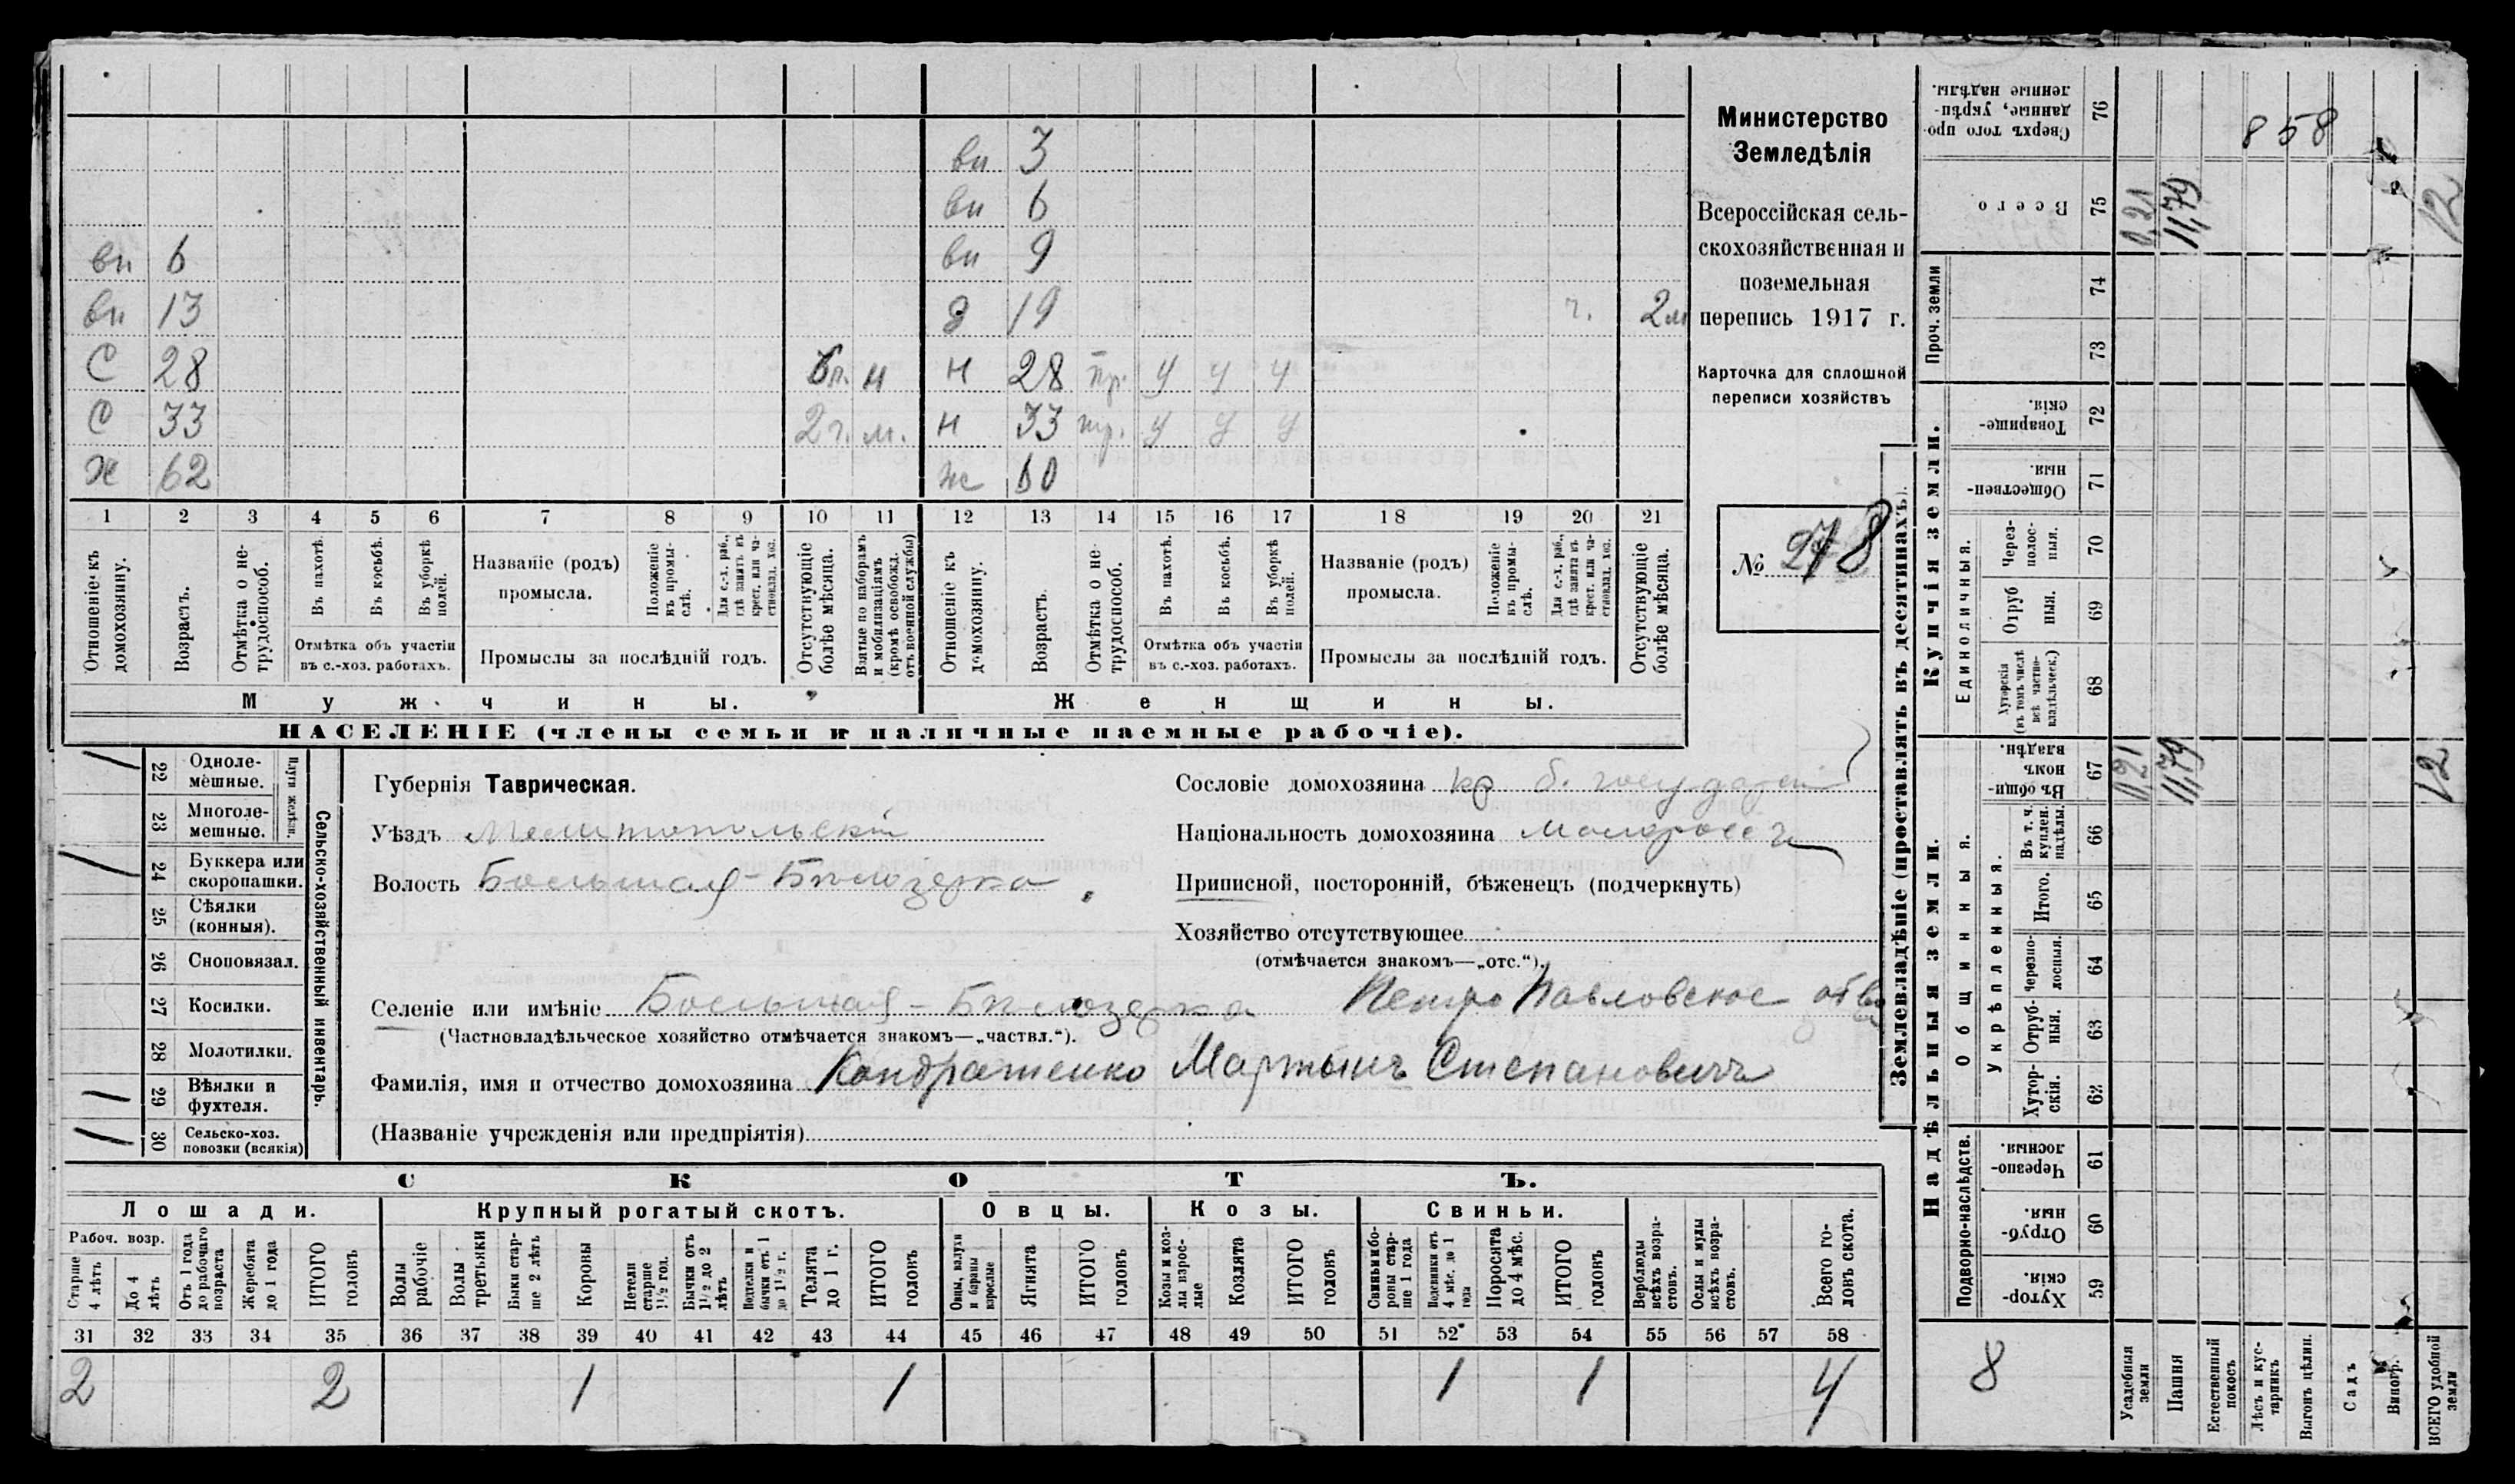 вн 3
вн 6
вн 6 вн 9
вн 13 д 19 г. 2 м
С 28 6 п. н н 28 пр. у у у
С 33 2 г. м. н 33 пр. у у у
Ж 62 ж 60
1 2 3 4 5 6 7 8 9 10 11 12 13 14 15 16 17 18 19 20 21
Отношеніе къ домохозяину.
Возрастъ.
Отмѣтка о не-трудоспособ.
Въ пахотѣ.
Въ косьбѣ.
Въ уборкѣ полей.
Отмѣтка объ участіи
въ с.-хоз. работахъ.
Названіе (родъ)
промысла.
Положеніе въ промы-слѣ.
Для с.-х. раб., гдѣ занятъ въ крест. или ча-стновлад. хоз.
Промыслы за послѣдній годъ.
Отсутствующіе болѣе мѣсяца.
Взятые по наборамъ и мобилизаціямъ (кромѣ освобожд. отъ военной службы)
Отношеніе къ домохозяину.
Возрастъ.
Отмѣтка о не трудоспособ.
Въ пахотѣ.
Въ косьбѣ.
Въ уборкѣ полей.
Отмѣтка объ участіи
въ с.-хоз. работахъ.
Названіе (родъ)
промысла.
Положеніе въ промы-слѣ.
Для с.-х. раб., гдѣ занята въ крест. или ча-стновлад. хоз.
Промыслы за послѣдній годъ.
Отсутствующіе болѣе мѣсяца.
Мужчины. Женщины.
НАСЕЛЕНІЕ (члены семьи и наличные наемные рабочіе).
Министерство
Земледѣлія
Всероссійская сель-
скохозяйственная и
поземельная
перепись 1917 г.
Карточка для сплошной
переписи хозяйствъ
№ 278
22 Одноле-мешные.
23 Многоле-мешные.
Плуги желѣзн.
24 Буккера или скоропашки.
25 Сѣялки (конныя).
26 Сноповязал.
27 Косилки.
28 Молотилки.
29 Вѣялки и фухтеля.
30 Сельско-хоз. повозки (всякія)
Сельско-хозяйственный инвентарь.
Губернія Таврическая.
Уѣздъ Мелитопольскій
Волость Большая-Бѣлозерка
Сословіе домохозяина кр. б. государст
Національность домохозяина Малороссъ
Приписной, посторонній, бѣженецъ (подчеркнуть)
Хозяйство отсутствующее
(отмѣчается знакомъ—„отс.“).
Селеніе или имѣніе Большая-Бѣлозерка Петро Павловское об-во
(Частновладѣльческое хозяйство отмѣчается знакомъ—„частвл.“).
Фамилія, имя и отчество домохозяина Кондратенко Мартынъ Степановичъ
(Названіе учрежденія или предпріятія)
СКОТЪ.
Лошади. Крупный рогатый скотъ. Овцы. Козы. Свиньи.
Рабоч. возр.
Старше 4 лѣтъ
До 4 лѣтъ
Отъ 1 года до рабочаго возраста
Жеребята до 1 года
ИТОГО головъ
Волы рабочіе
Волы третьяки
Быки стар-ше 2 лѣтъ
Коровы
Нетели старше 1½ год.
Бычки отъ 1½ до 2 лѣтъ
Подтелки и бычки отъ 1 до 1½ г.
Телята до 1 г.
ИТОГО головъ
Овцы, валухи и бараны взрослые
Ягнята
ИТОГО головъ
Козы и коз-лы взрос-лые
Козлята
ИТОГО головъ
Свиньи бо-ровы стар-ше 1 года
Подсвинки отъ 4 мѣс. до 1 года
Поросята до 4 мѣс.
ИТОГО головъ
Верблюды всѣхъ возра-стовъ.
Ослы и мулы всѣхъ возра-стовъ.
Всего го-ловъ скота.
31 32 33 34 35 36 37 38 39 40 41 42 43 44 45 46 47 48 49 50 51 52 53 54 55 56 57 58
2 2 1 1 1 1 4
Землевладѣніе (проставлять въ десятинахъ).
Надѣльныя земли. Купчія земли. Проч. земли
Подворно-наслѣдств.
Общинныя.
Укрѣпленныя.
Единоличныя.
59 Хутор-скія.
60 Отруб-ныя.
61 Черезпо-лосныя.
62 Хутор-скія.
63 Отруб-ныя.
64 Черезпо-лосныя.
65 Итого.
66 Въ т. ч. куплен. надѣлы.
67 Въ общи-номъ владѣн.
68 Хуторскія (въ томъ числѣ всѣ частно-владѣльческ.)
69 Отруб ныя.
70 Через-полос-ныя.
71 Обществен-ныя.
72 Товарище-скія.
73
74
75 Всего
76 Сверхъ того про-данные, укрѣп-ленные надѣлы.
8
Усадебныя земли
Пашня
Естественный покосъ
Лѣсъ и кус-тарникъ
Выгонъ цѣлин.
Садъ
Виногр.
ВСЕГО удобной земли
0,21 11,79 12
0,21 11,79 12
858